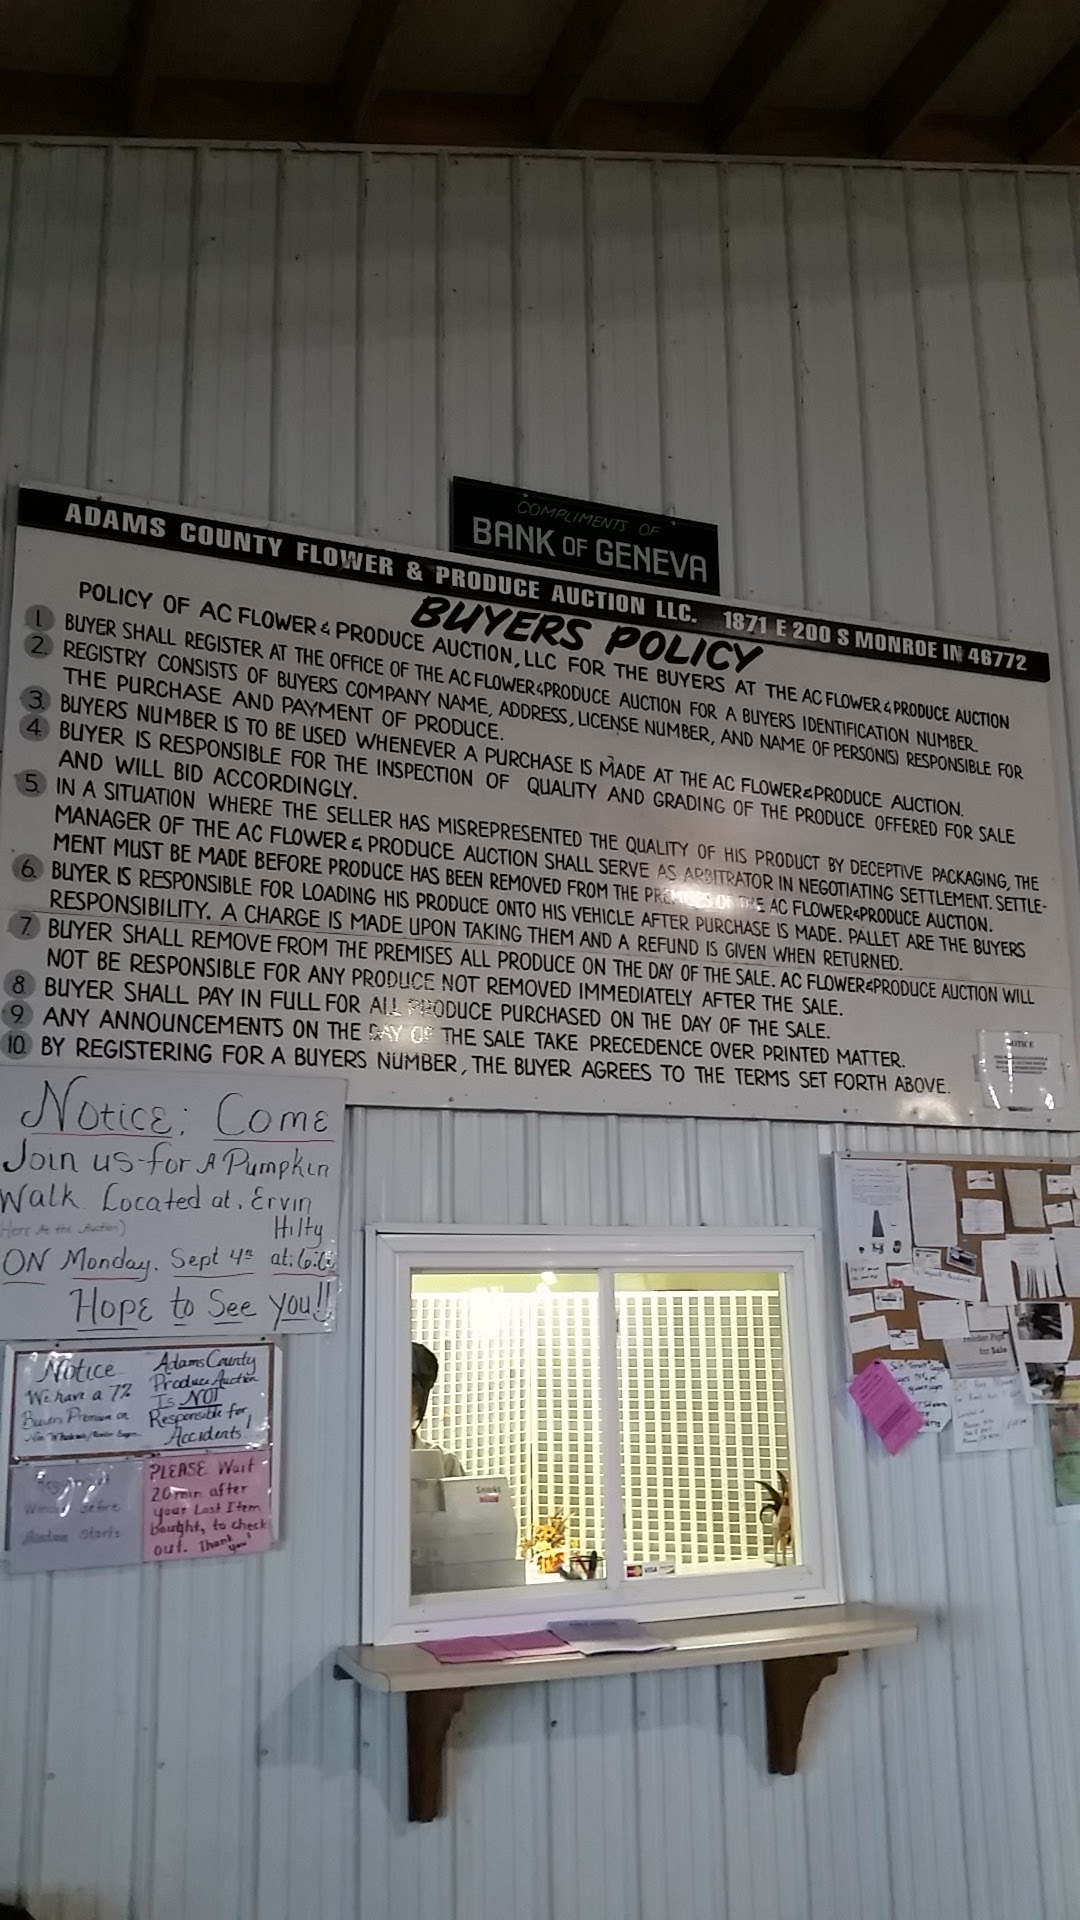 COMPLIMENTS OF
BANK OF GENEVA
ADAMS COUNTY FLOWER & PRODUCE AUCTION LLC. 1871 E 200 S MONROE IN 46772
BUYERS POLICY
POLICY OF AC FLOWER & PRODUCE AUCTION, LLC FOR THE BUYERS AT THE AC FLOWER & PRODUCE AUCTION
1. BUYER SHALL REGISTER AT THE OFFICE OF THE AC FLOWER & PRODUCE AUCTION FOR A BUYERS IDENTIFICATION NUMBER.
2. REGISTRY CONSISTS OF BUYERS COMPANY NAME, ADDRESS, LICENSE NUMBER, AND NAME OF PERSON(S) RESPONSIBLE FOR
THE PURCHASE AND PAYMENT OF PRODUCE.
3. BUYERS NUMBER IS TO BE USED WHENEVER A PURCHASE IS MADE AT THE AC FLOWER & PRODUCE AUCTION.
4. BUYER IS RESPONSIBLE FOR THE INSPECTION OF QUALITY AND GRADING OF THE PRODUCE OFFERED FOR SALE
AND WILL BID ACCORDINGLY.
5. IN A SITUATION WHERE THE SELLER HAS MISREPRESENTED THE QUALITY OF HIS PRODUCT BY DECEPTIVE PACKAGING, THE
MANAGER OF THE AC FLOWER & PRODUCE AUCTION SHALL SERVE AS ARBITRATOR IN NEGOTIATING SETTLEMENT. SETTLE-
MENT MUST BE MADE BEFORE PRODUCE HAS BEEN REMOVED FROM THE PREMISES OF THE AC FLOWER & PRODUCE AUCTION.
6. BUYER IS RESPONSIBLE FOR LOADING HIS PRODUCE ONTO HIS VEHICLE AFTER PURCHASE IS MADE. PALLET ARE THE BUYERS
RESPONSIBILITY. A CHARGE IS MADE UPON TAKING THEM AND A REFUND IS GIVEN WHEN RETURNED.
7. BUYER SHALL REMOVE FROM THE PREMISES ALL PRODUCE ON THE DAY OF THE SALE. AC FLOWER & PRODUCE AUCTION WILL
NOT BE RESPONSIBLE FOR ANY PRODUCE NOT REMOVED IMMEDIATELY AFTER THE SALE.
8. BUYER SHALL PAY IN FULL FOR ALL PRODUCE PURCHASED ON THE DAY OF THE SALE.
9. ANY ANNOUNCEMENTS ON THE DAY OF THE SALE TAKE PRECEDENCE OVER PRINTED MATTER.
10. BY REGISTERING FOR A BUYERS NUMBER, THE BUYER AGREES TO THE TERMS SET FORTH ABOVE.
NOTICE
Notice: Come
Join us for A Pumpkin
Walk Located at, Ervin
Hilty
(Here At the Auction)
ON Monday, Sept 4th at:
Hope to See you!!
Notice
We have a 7%
Buyers Premium on
Adams County
Produce Auction
Is NOT
Responsible for
Accidents!
Before
Auction Starts
PLEASE Wait
20 min after
your Last Item
bought, to check
out. Thank you!
Snacks
VISA
for Sale